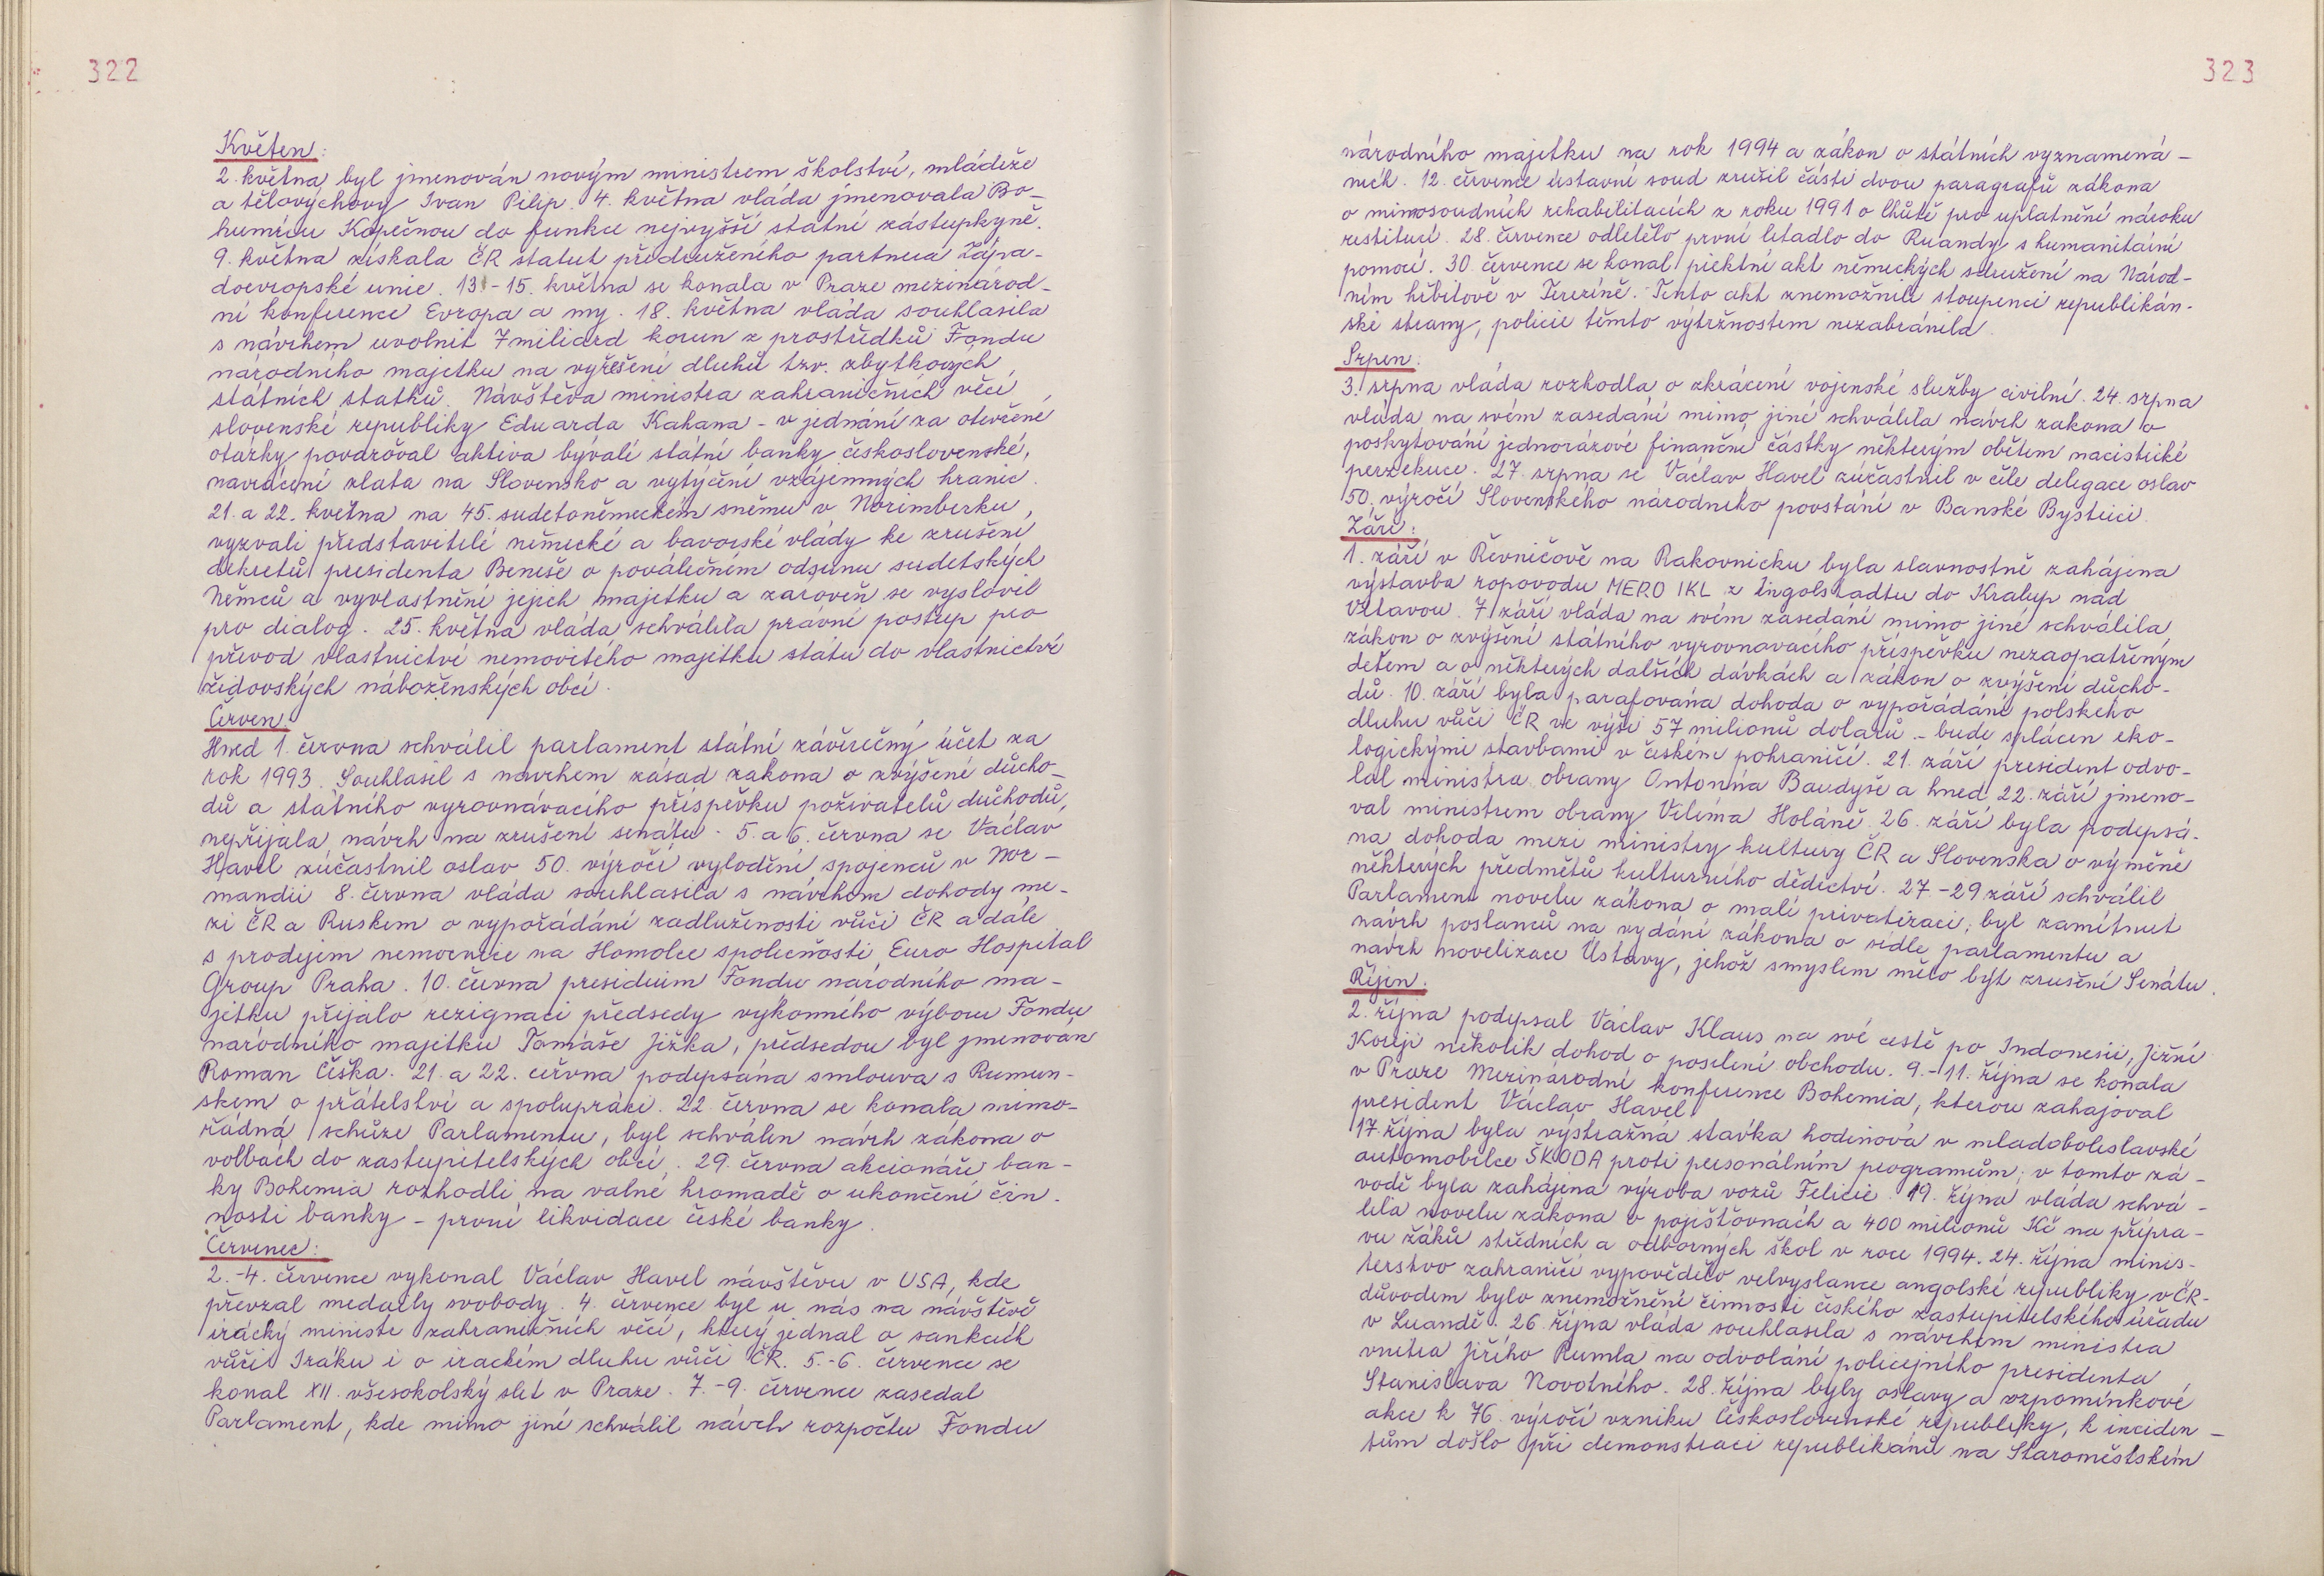 322
Květen:
2. května byl jmenován novým ministrem školství, mládeže
a tělovýchovy Ivan Pilip. 4. května vláda jmenovala Bo-
humíru Kopečnou do funkce nejvyšší státní zástupkyně.
9. května získala ČR statut přidruženého partnera Zápa-
doevropské unie. 13.-15. května se konala v Praze mezinárod-
ní konference Evropa a my. 18. května vláda souhlasila
s návrhem uvolnit 7 miliard korun z prostředků Fondu
národního majetku na vyřešení dluhů tzv. zbytkových
státních statků. Návštěva ministra zahraničních věcí
slovenské republiky Eduarda Kukana - v jednání za otevřené
otázky považoval aktiva bývalé státní banky československé,
navrácení zlata na Slovensko a vytýčení vzájemných hranic.
21. a 22. května na 45. sudetoněmeckém sněmu v Norimberku,
vyzvali představitelé německé a bavorské vlády ke zrušení
dekretů presidenta Beneše o poválečném odsunu sudetských
Němců a vyvlastnění jejich majetku a zároveň se vyslovil
pro dialog. 25. května vláda schválila právní postup pro
převod vlastnictví nemovitého majetku státu do vlastnictví
židovských náboženských obcí.
Červen:
Hned 1. června schválil parlament státní závěrečný účet za
rok 1993. Souhlasil s návrhem zásad zákona o zvýšení důcho-
dů a státního vyrovnávacího příspěvku poživatelů důchodů,
nepřijala návrh na zrušení senátu. 5. a 6. června se Václav
Havel zúčastnil oslav 50. výročí vylodění spojenců v Nor-
mandii 8. června vláda souhlasila s návrhem dohody me-
zi ČR a Ruskem o vypořádání zadluženosti vůči ČR a dále
s prodejem nemocnice na Homolce společnosti Euro Hospital
Group Praha. 10. června presidium Fondu národního ma-
jetku přijalo rezignaci předsedy výkonného výboru Fondu
národního majetku Tomáše Ježka, předsedou byl jmenován
Roman Češka. 21. a 22. června podepsána smlouva s Rumun-
skem o přátelství a spolupráci. 22. června se konala mimo-
řádná schůze Parlamentu, byl schválen návrh zákona o
volbách do zastupitelských obcí. 29. června akcionáři ban-
ky Bohemia rozhodli na valné hromadě o ukončení čin-
nosti banky - první likvidace české banky.
Červenec:
2.-4. července vykonal Václav Havel návštěvu v USA, kde
převzal medaily svobody. 4. července byl u nás na návštěvě
irácký ministr zahraničních věcí, který jednal o sankcích
vůči Iráku i o iráckém dluhu vůči ČR. 5.-6. července se
konal XII. všesokolský slet v Praze. 7.-9. července zasedal
Parlament, kde mimo jiné schválil návrh rozpočtu Fondu
323
národního majetku na rok 1994 a zákon o státních vyznamená-
ních. 12. července ústavní soud zrušil části dvou paragrafů zákona
o mimosoudních rehabilitacích z roku 1991 o lhůtě pro uplatnění nároku
restitucí. 28. července odletělo první letadlo do Rwandy s humanitární
pomocí. 30. července se konal pietní akt německých sdružení na Národ-
ním hřbitově v Terezíně. Tento akt znemožnili stoupenci republikán-
ské strany, policie těmto výtržnostem nezabránila.
Srpen:
3. srpna vláda rozhodla o zkrácení vojenské služby civilní. 24. srpna
vláda na svém zasedání mimo jiné schválila návrh zákona o
poskytování jednorázové finanční částky některým obětem nacistické
perzekuce. 27. srpna se Václav Havel zúčastnil v čele delegace oslav
50. výročí Slovenského národního povstání v Banské Bystrici.
Září:
1. září v Řevničově na Rakovnicku byla slavnostně zahájena
výstavba ropovodu MERO IKL z Ingolstadtu do Kralup nad
Vltavou. 7. září vláda na svém zasedání mimo jiné schválila
zákon o zvýšení státního vyrovnavacího příspěvku nezaopatřeným
dětem a o některých dalších dávkách a zákon o zvýšení důcho-
dů. 10. září byla parafována dohoda o vypořádání polského
dluhu vůči ČR ve výši 57 milionů dolarů - bude splácen eko-
logickými stavbami v českém pohraničí. 21. září president odvo-
lal ministra obrany Antonína Baudyše a hned 22. září jmeno-
val ministrem obrany Viléma Holáně. 26. září byla podepsá-
na dohoda mezi ministry kultury ČR a Slovenska o výměně
některých předmětů kulturního dědictví. 27.-29 září schválil
Parlament novelu zákona o malé privatizaci; byl zamítnut
návrh poslanců na vydání zákona o sídle parlamentu a
návrh novelizace Ústavy, jehož smyslem mělo být zrušení Senátu.
Říjen:
2. října podepsal Václav Klaus na své cestě po Indonesii, Jižní
Koreji několik dohod o posílení obchodu. 9.-11. října se konala
v Praze Mezinárodní konference Bohemia, kterou zahajoval
president Václav Havel.
17. října byla výstražná stávka hodinová v mladoboleslavské
automobilce ŠKODA proti personálním programům; v tomto zá-
vodě byla zahájena výroba vozů Felicie. 19. října vláda schvá-
lila novelu zákona o pojišťovnách a 400 milionů Kč na přípra-
vu žáků středních a odborných škol v roce 1994. 24. října minis-
terstvo zahraničí vypovědělo velvyslance angolské republiky v ČR-
důvodem bylo znemožnění činnosti českého zastupitelského úřadu
v Luandě. 26. října vláda souhlasila s návrhem ministra
vnitra Jiřího Rumla na odvolání policejního presidenta
Stanislava Novotného. 28. října byly oslavy a vzpomínkové
akce k 76. výročí vzniku Československé republiky, k inciden-
tům došlo při demonstraci republikánů na Staroměstském